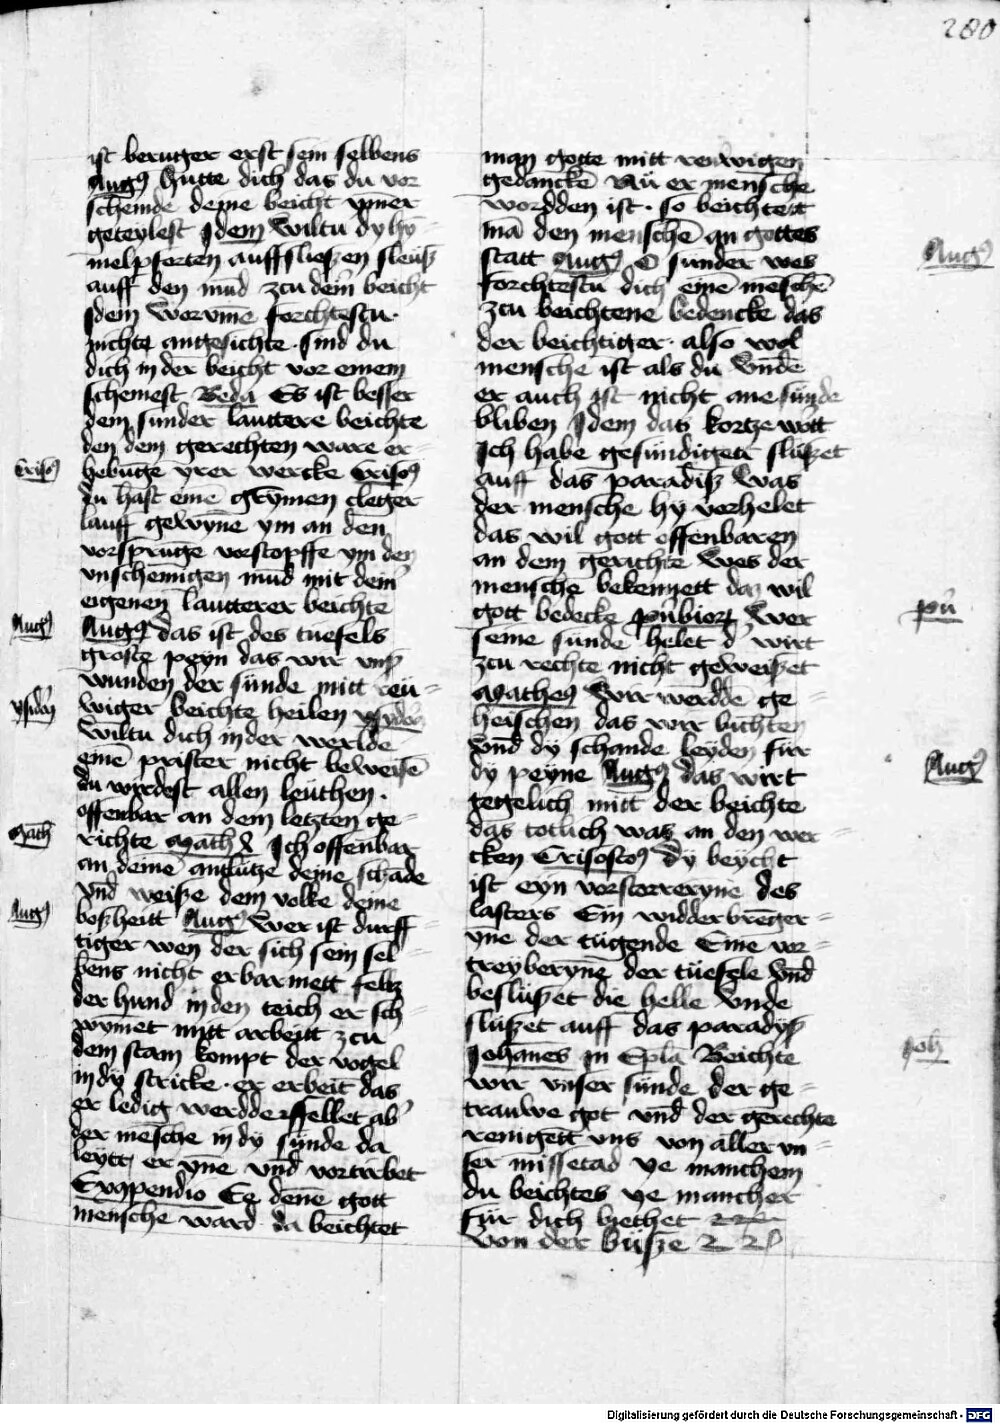 280
ist beruger erst sein selbens
Augꝰ hutte dich das du vor
scheinde deine beicht ymer
geteylest Idem Wiltu dy hy-
melpforten auffsließen sleuß
auff den mūd zcu dein̄ beicht
Idem Worvm̄e forchtestu
zuchte angesichte · sind du
dich in der beicht vor einem
schemest Beda Es ist besser
dem sunder lauttere beichte
den dem gerechten ware er-
hebūge yrer wercke Crisoꝰ
du hast einē grȳmen cleger
lauff gewȳne ym an den
vorsprūge vorstopffe ym den
vnschemigen mūd mit dem
eigenen lautterer beichte
Augꝰ das ist des tuefels
groste peyn das wir vnß
wunden der sünde mitt reü-
wiger beichte heilen ysyderꝰ
Wiltu dich in der werlde
einē prister nicht beweisē
du wirdest allen leüthen ·
offenbar an dem letzten ge-
richte Math Ich offenbar
an deinē antlütze deine schāde
vnd weiße dem volke deine
boßheitt Augꝰ Wer ist durff-
tiger wen der sich sein sel-
bens nicht erbarmett feltz
der hund in den teich er sch-
wȳmet mitt arbeitt zcu
dem stam kompt der vogel
in dy stricke · er erbeit das
er ledig werdde ffellet ab'
der mēsche in dy sünde da
leytt er yñe vnd vortirbet
Ex9pendio Ee denē gott
mensche ward da beichtet
man gotte mitt rewigen
gedanckē Nü er mensche
wordden ist · so beichtett
mā den menschē an gottes
statt Augꝰ O sunder wes
forchtestu dich einē mēschē
zcu beichtene bedencke das
der beichtiger · also wol
mensche ist als du vnde
er auch ist nicht ane sünde
bliben Idem das kortze wort
Ich habe gesündigett slüßet
auff das paradiß Was
der mensche hy vorhelet
das wil gott offenbaren
an dem gerichte Wes der
mensche bekennett das wil
gott bedecke puͤbioꝝ Wer
seine sunde helet d' wirt
zcu rechte nicht geweißet
Matheꝰ Wir werddē ge-
heischen das wir büchten
vnd dy schande leyden für
dy peyne Augꝰ das wirt
gegelich mitt der beichte
das totlich was an den wer-
cken Crisostoꝰ Dy beycht
ist eyn vorstorreryne des
lasters Ein widderbreger-
yne der tügende Eine vor-
treyberynē der tüefele vnd
beslüßet die helle vnde
slüßet auff das paradyß
Iohānes in Epl̄a Beichte
wir vnser sünde der ge-
trauwe got vnd der gerechte
reinigett vns von aller vn-
ser missetad ye manchem
du beichtes ye mancher
für dich biethet
Von der büße
Crisoꝰ
Augꝰ
ysiderꝰ
Math
Augꝰ
Augꝰ
pu͂
Augꝰ
Joh̄
Digitalisierung gefördert durch die Deutsche Forschungsgemeinschaft - DFG